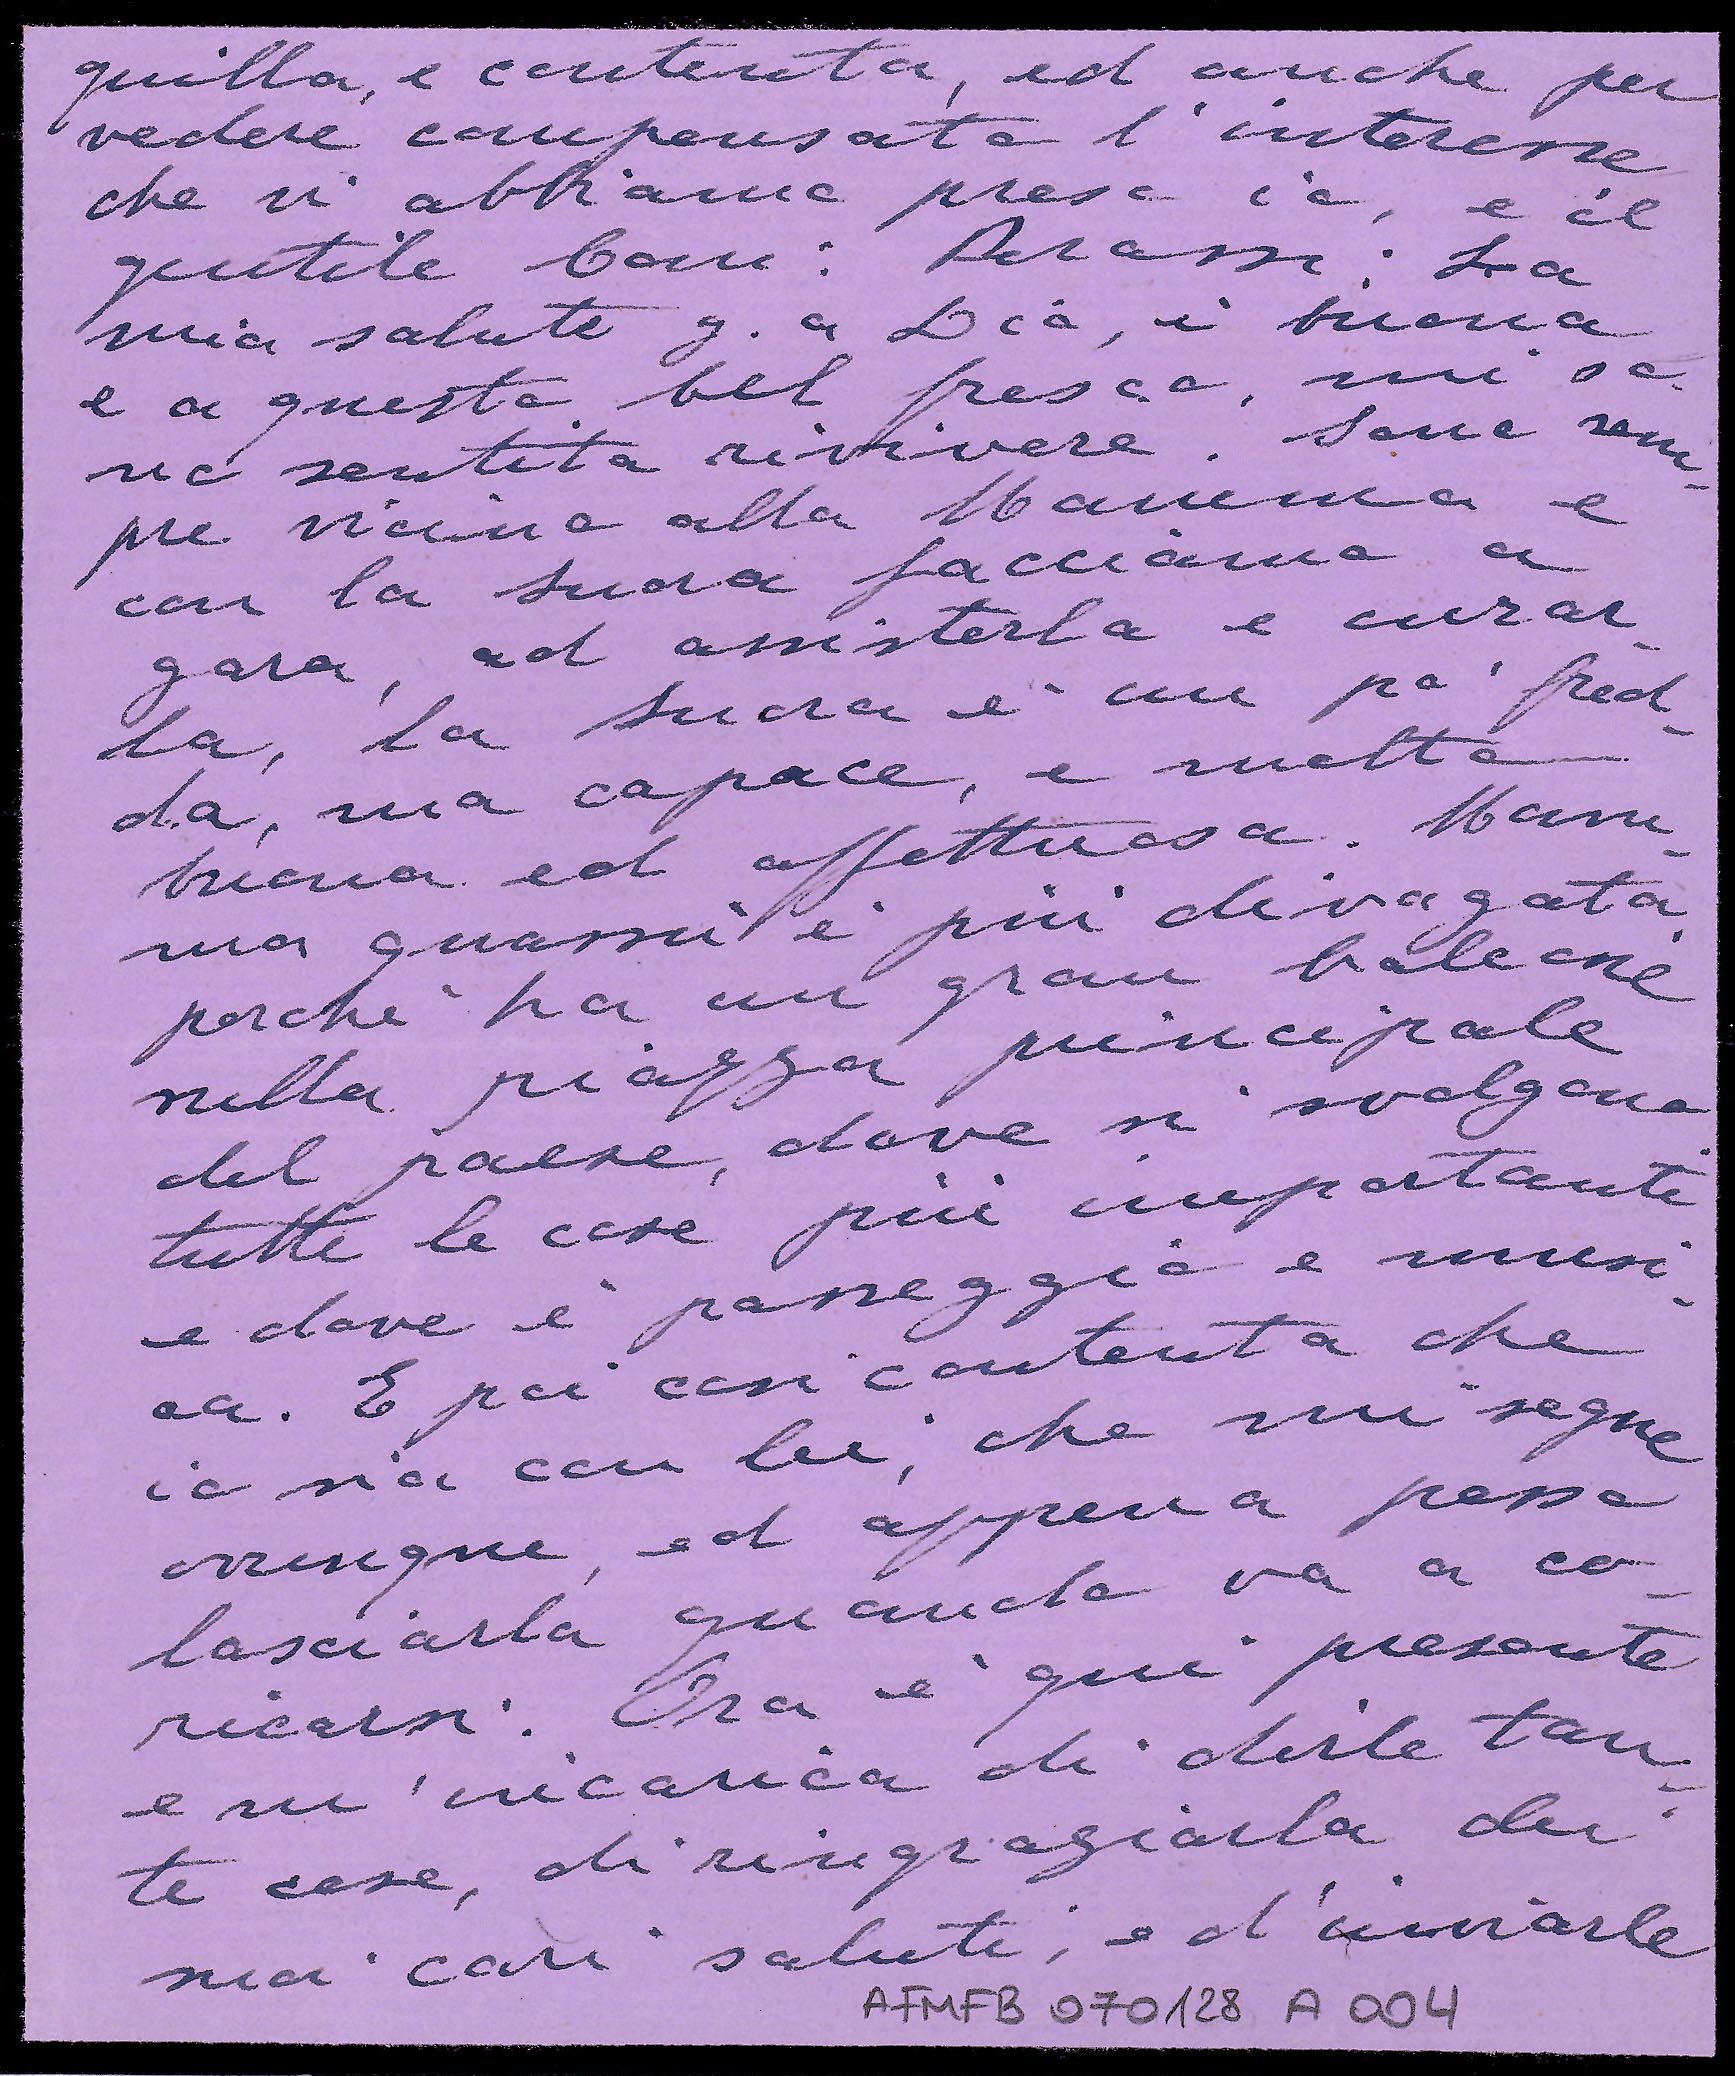 quilla, e contenta, ed anche per
vedere compensato l'interesse
che vi abbiamo preso io, e il
gentile Com: Perassi: La
mia salute g. a Dio, è buona
e a questo bel fresco, mi so-
no sentita rivivere. Sono sem-
pre vicino alla Mamma e
con la Suora facciamo a
gara, ad assisterla e curar-
la, La Suora è un po' fred-
da, ma capace, e molto
buona ed affettuosa. Mam-
ma quassù è più divagata
perchè ha un gran balcone
nella piazza principale
del paese, dove si svolgono
tutte le cose più importanti
e dove è passeggio e musi-
ca. E poi così contenta che
io sia con lei, che mi segue
ovunque, ed appena posso
lasciarla quando va a co-
ricarsi. Ora è qui presente
e m'incarica di dirle tan-
te cose, di ringraziarla dei
suoi cari saluti, e d'inviarle
AFMFB 070128 A 004